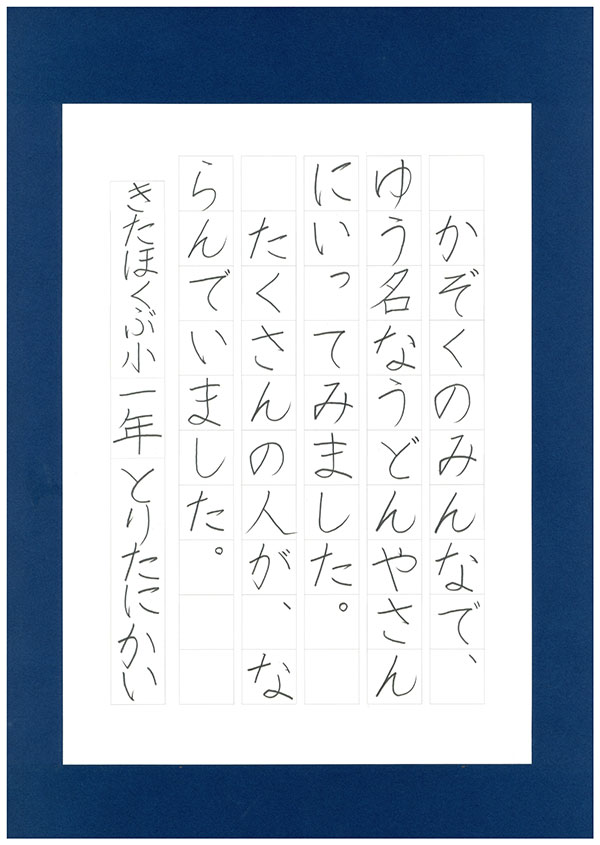 かぞくのみんなで、
ゆう名なうどんやさん
にいってみました。
たくさんの人が、な
らんでいました。
きたほくぶ小 一年 とりたにかい